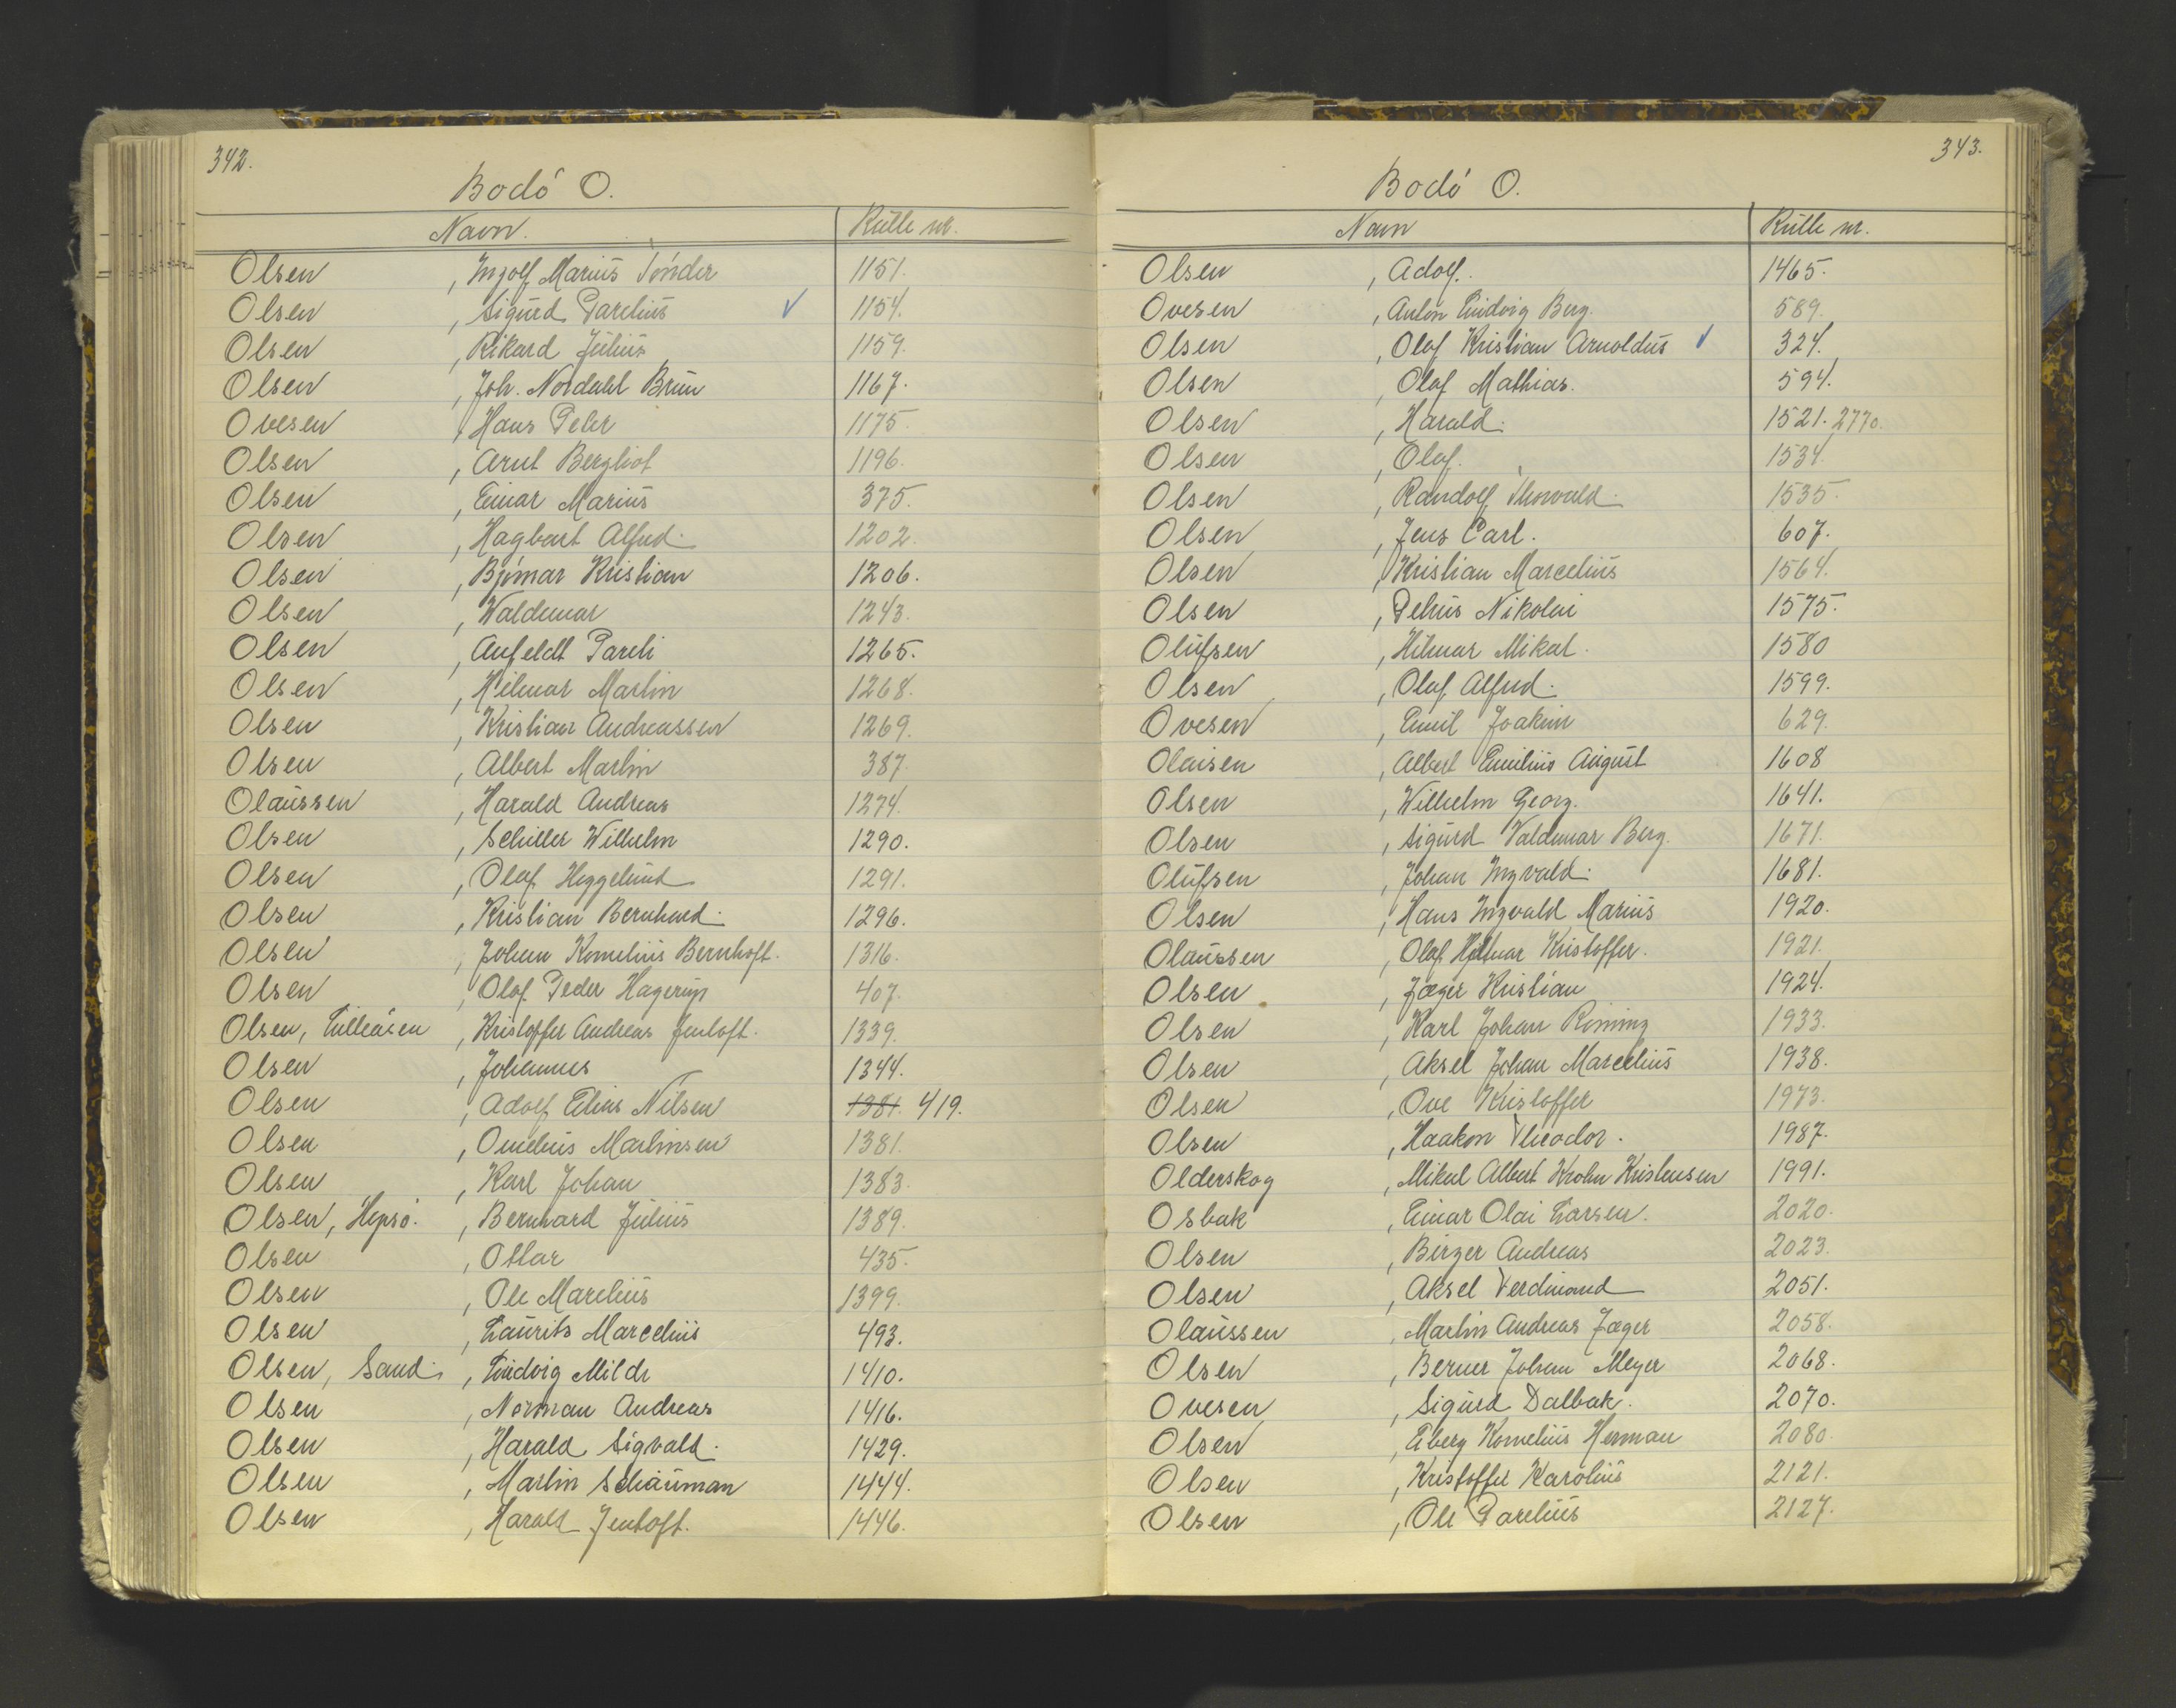 342.
Bodö O.
Navn. Rulle nr.
Olsen , Ingolf Marius Tönder 1151.
Olsen , Sigurd Parelius ✓ 1154.
Olsen , Rikard Julius 1159.
Olsen , Joh. Nordahl Brun 1167.
Ovesen , Hans Peter 1175.
Olsen , Arnt Bergliot 1196.
Olsen , Einar Marius 375.
Olsen , Hagbart Alfred. 1202.
Olsen , Björnar Kristian 1206.
Olsen , Waldemar 1243.
Olsen , Anfeldt Pareli 1265.
Olsen , Hilmar Martin 1268.
Olsen , Kristian Andreassen 1269.
Olsen , Albert Martin 387.
Olaussen , Harald Andreas 1274.
Olsen , Schiller Wilhelm 1290.
Olsen , Olaf Heggelund 1291.
Olsen , Kristian Bernhard. 1296.
Olsen , Johan Kornelius Bernhoft. 1316.
Olsen , Olaf Peder Hagerup 407.
Olsen, Lilleåsen , Kristoffer Andreas Jentoft. 1339.
Olsen , Johannes 1344.
Olsen , Adolf Elias Nilsen 1381. 419.
Olsen , Omelius Martinsen 1381.
Olsen , Karl Johan 1383.
Olsen, Hepsö. , Bernhard Julius 1389.
Olsen , Ottar 435.
Olsen , Ole Marelius 1399.
Olsen , Laurits Marcelius 493.
Olsen, Sand. , Ludvig Milde 1410.
Olsen , Norman Andreas 1416.
Olsen , Harald Sigvald. 1429.
Olsen , Martin Schauman 1444.
Olsen , Harald Jentoft. 1446.
343.
Bodö O.
Navn Rulle nr.
Olsen , Adolf. 1465.
Ovesen , Anton Ludvig Berg. 589.
Olsen , Olaf Kristian Arnoldus ✓ 324.
Olsen , Olaf Mathias. 594.
Olsen , Harald. 1521. 2770.
Olsen , Olaf. 1534.
Olsen , Randolf Thorvald. 1535.
Olsen , Jens Carl. 607.
Olsen , Kristian Marcelius 1564.
Olsen , Petrus Nikolai 1575.
Olufsen , Hilmar Mikal. 1580
Olsen , Olaf Alfred. 1599.
Ovesen , Emil Joakim 629.
Olaisen , Albert Emilius August 1608
Olsen , Wilhelm Georg. 1641.
Olsen , Sigurd Valdemar Berg. 1671.
Olufsen , Johan Ingvald. 1681.
Olsen , Hans Ingvald Marius 1920.
Olaussen , Olaf Hilmar Kristoffer. 1921.
Olsen , Jæger Kristian 1924.
Olsen , Karl Johan Roming 1933.
Olsen , Aksel Johan Marcelius 1938.
Olsen , Ove Kristoffer 1973.
Olsen , Haakon Theodor. 1987.
Olderskog , Mikal Albert Krohn Kristensen 1991.
Osbak , Einar Olai Larsen. 2020.
Olsen , Birger Andreas 2023.
Olsen , Aksel Ferdinand 2051.
Olaussen , Martin Andreas Jæger 2058.
Olsen , Berner Johan Meyer 2068.
Ovesen , Sigurd Dalbak. 2070.
Olsen , Eberg Kornelius Herman 2080.
Olsen , Kristoffer Karolius 2121.
Olsen , Ole Parelius 2127.